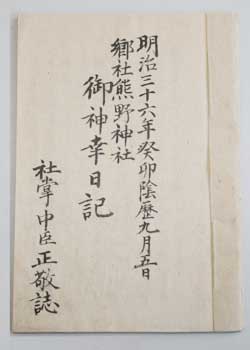 明治三十六年癸卯陰歴九月五日
郷社熊野神社
御神幸日記
社掌中臣正敬誌